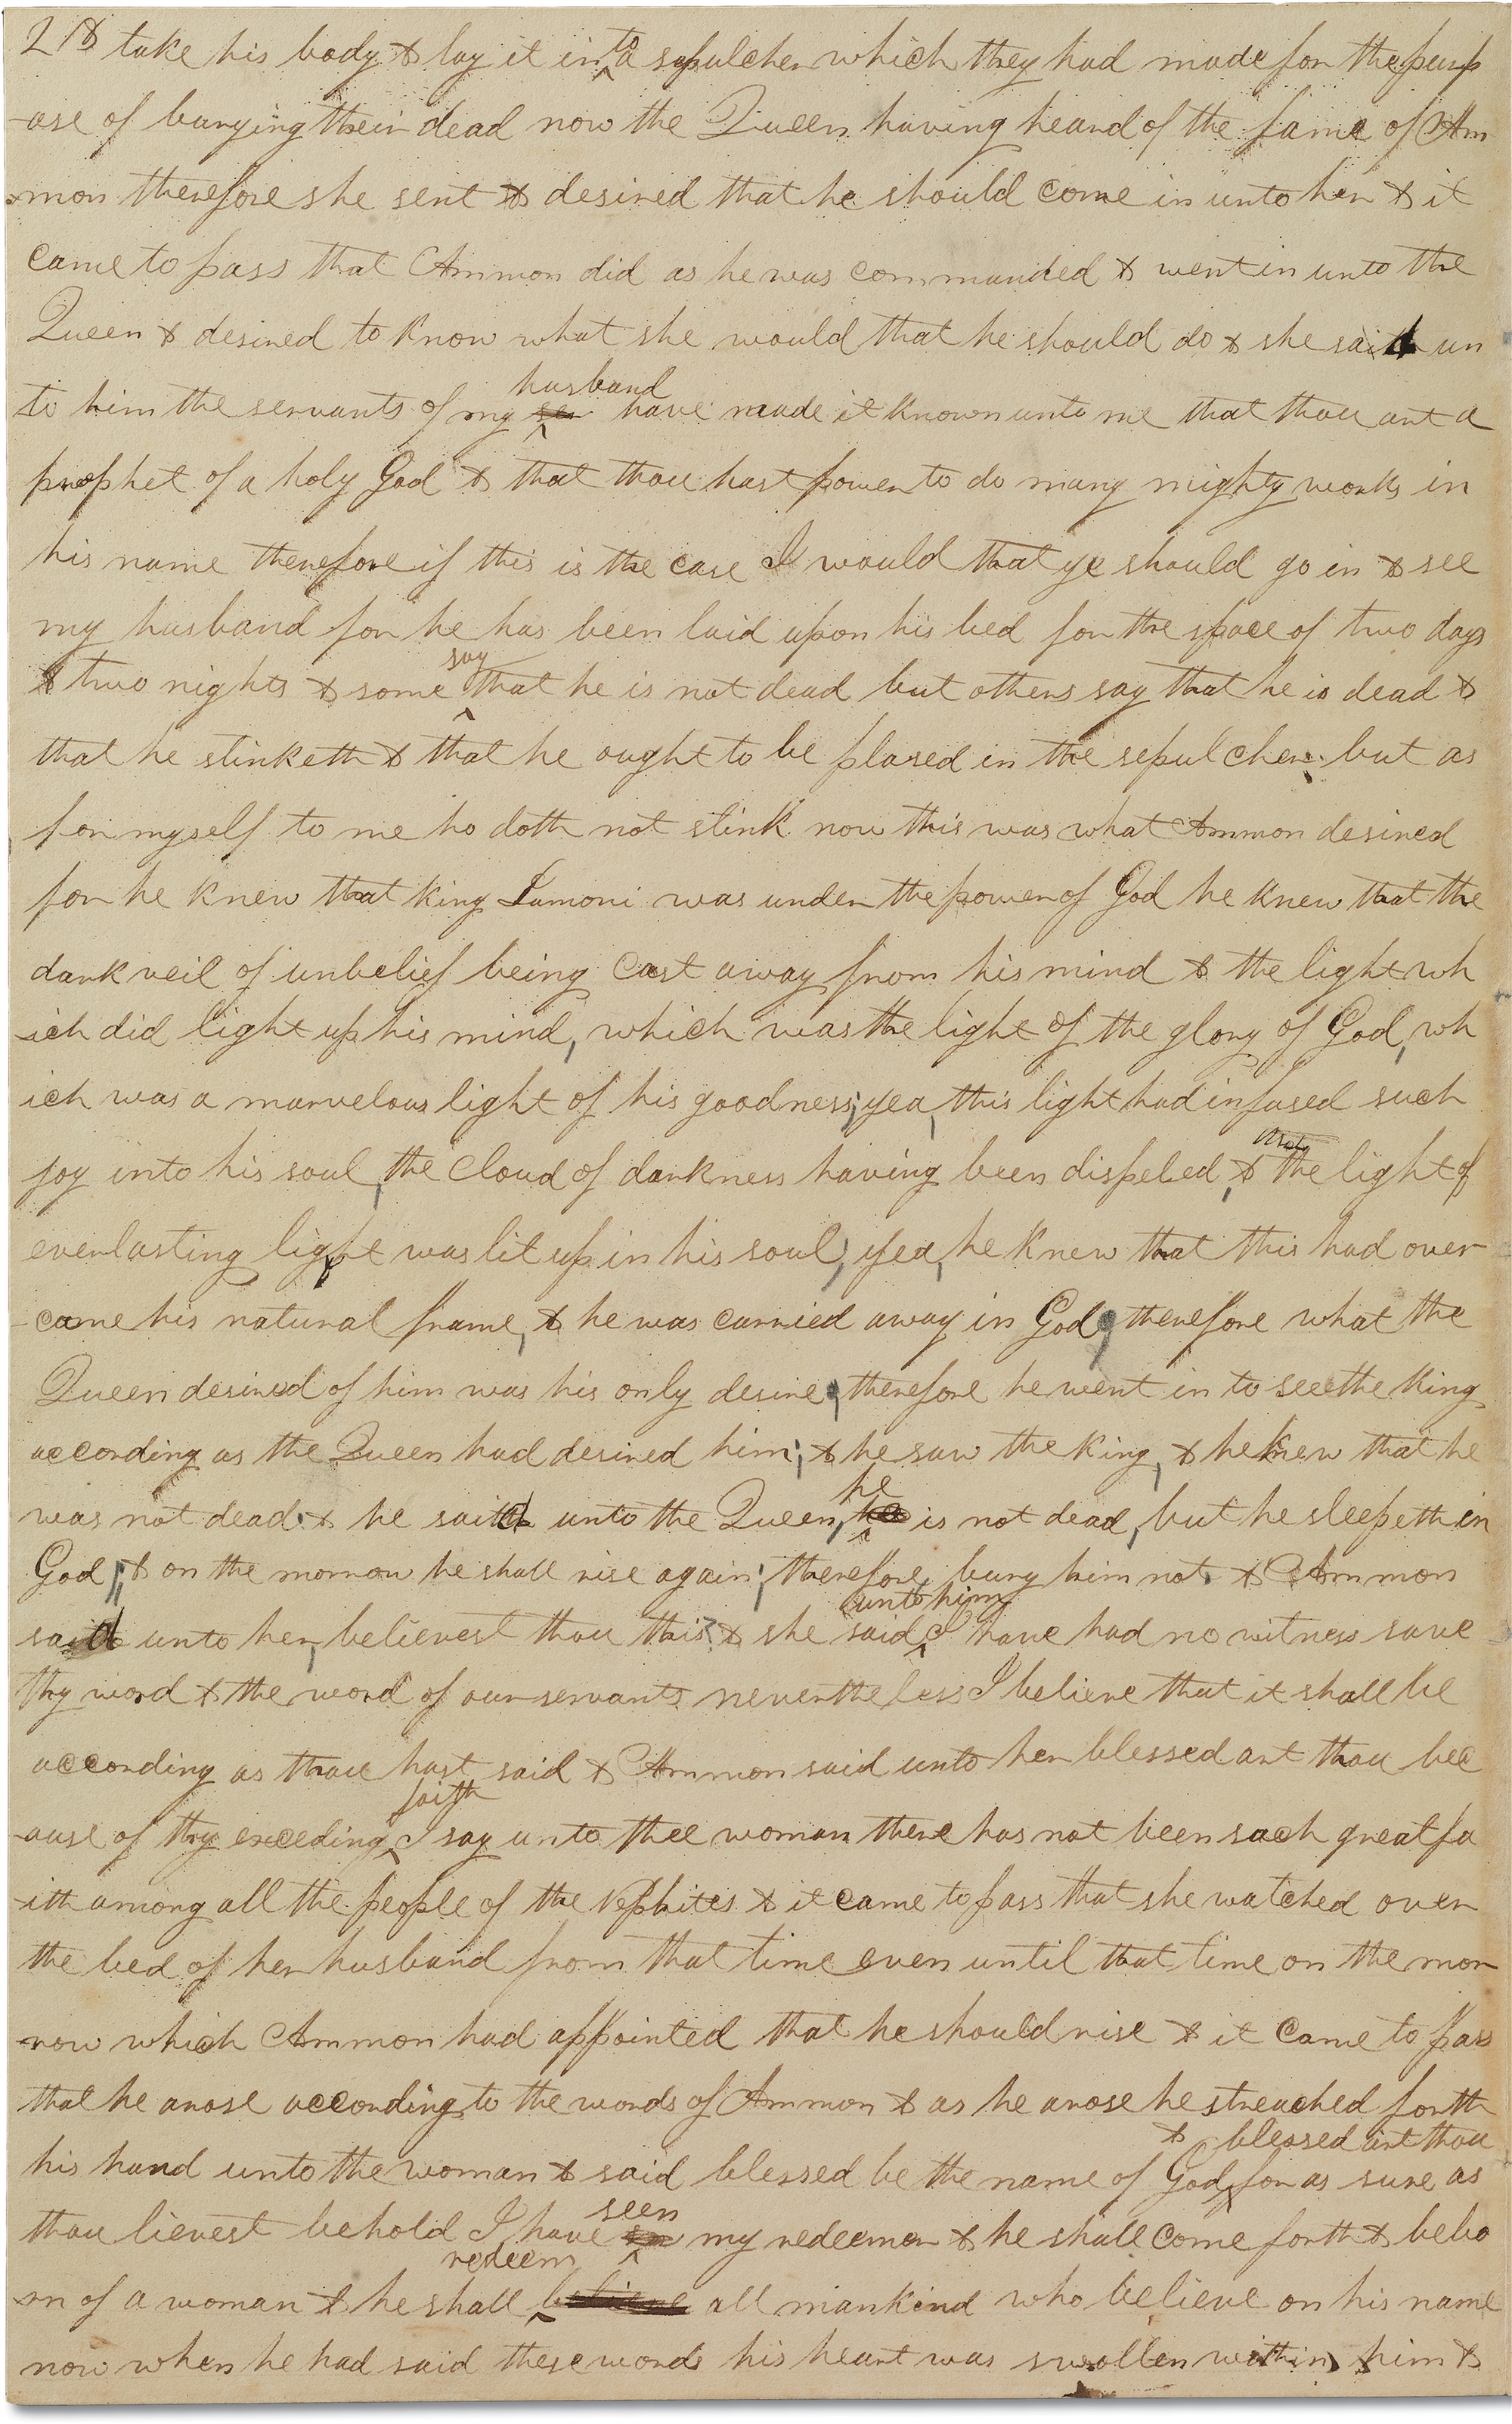 218 take his body & lay it into a sepulcher which they had made for the purp
-ose of burying their dead now the Queen having heard of the fame of Am
-mon therefore she sent & desired that he should come in unto her & it
came to pass that Ammon did as he was commanded & went in unto the
Queen & desired to know what she would that he should do & she said un
to him the servants of my husband have made it known unto me that thou art a
prophet of a holy God & that thou hast power to do many mighty works in
his name therefore if this is the case I would that ye should go in & see
my husband for he has been laid upon his bed for the space of two days
& two nights & some say that he is not dead but others say that he is dead &
that he stinketh & that he ought to be plased in the sepulcher. but as
for myself to me ho doth not stink now this was what Ammon desired
for he knew that king Lamoni was under the power of God he knew that the
dark veil of unbelief being cast away from his mind & the light wh
-ich did light up his mind, which was the light of the glory of God, wh
ich was a marvelous light of his goodness; yea, this light had infused such
joy into his soul, the cloud of darkness having been dispeled, & that the light of
everlasting light was lit up in his soul; yea, he knew that this had over
-came his natural frame, & he was carried away in God; therefore what the
Queen desired of him was his only desire; therefore he went in to see the king
according as the Queen had desired him; & he saw the king, & he knew that he
was not dead. & he said unto the Queen, he is not dead, but he sleepeth in
God; & on the morrow he shall rise again; therefore bury him not. & Ammon
said unto her, believest thou this? & she said unto him I have had no witness save
thy word & the word of our servants nevertheless I believe that it shall be
according as thou hast said & Ammon said unto her blessed art thou bec
-ause of thy exceding faith I say unto thee woman there has not been such great fa
-ith among all the people of the Nephites & it came to pass that she watched over
the bed of her husband from that time even until that time on the mor
-row which Ammon had appointed that he should rise & it came to pass
that he arose according to the words of Ammon & as he arose he streached forth
his hand unto the woman & said blessed be the name of God & blessed art thou for as sure as
thou lievest behold I have seen my redeemer & he shall come forth & be bo
-rn of a woman & he shall redeem all mankind who believe on his name
now when he had said these words his heart was swollen within him &